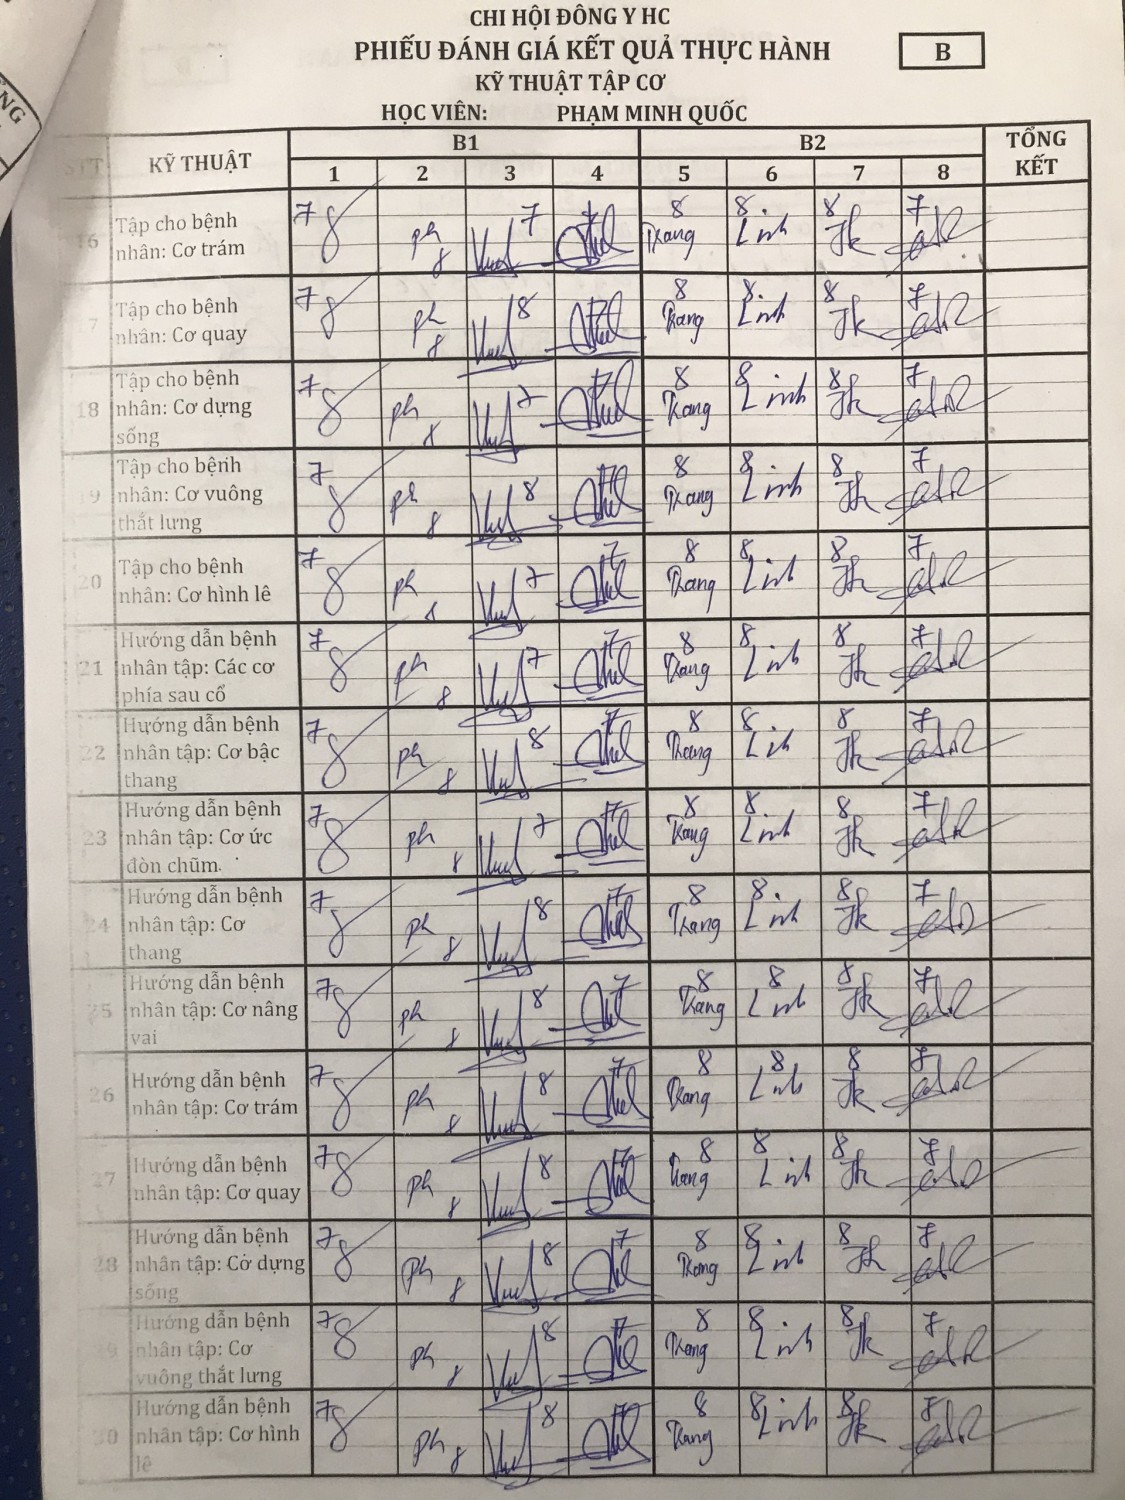 CHI HỘI ĐÔNG Y HC
PHIẾU ĐÁNH GIÁ KẾT QUẢ THỰC HÀNH
B
KỸ THUẬT TẬP CƠ
HỌC VIÊN: PHẠM MINH QUỐC
STT KỸ THUẬT B1 B2 TỔNG KẾT
1 2 3 4 5 6 7 8
16 Tập cho bệnh nhân: Cơ trám 7 8 ph 8 7 7 8 Trang 8 Linh 8 7
7 Tập cho bệnh nhân: Cơ quay 7 8 ph 8 8 7 8 Trang 8 Linh 8 7
18 Tập cho bệnh nhân: Cơ dựng sống 7 8 ph 8 7 7 8 Trang 8 Linh 8 7
9 Tập cho bệnh nhân: Cơ vuông thắt lưng 7 8 ph 8 8 7 8 Trang 8 Linh 8 7
20 Tập cho bệnh nhân: Cơ hình lê 7 8 ph 8 7 7 8 Trang 8 Linh 8 7
21 Hướng dẫn bệnh nhân tập: Các cơ phía sau cổ 7 8 ph 8 7 7 8 Trang 8 Linh 8 7
22 Hướng dẫn bệnh nhân tập: Cơ bậc thang 7 8 ph 8 8 7 8 Trang 8 Linh 8 7
23 Hướng dẫn bệnh nhân tập: Cơ ức đòn chũm. 7 8 ph 8 7 7 8 Trang 8 Linh 8 7
24 Hướng dẫn bệnh nhân tập: Cơ thang 7 8 ph 8 8 7 8 Trang 8 Linh 8 7
25 Hướng dẫn bệnh nhân tập: Cơ nâng vai 7 8 ph 8 8 7 8 Trang 8 Linh 8 7
26 Hướng dẫn bệnh nhân tập: Cơ trám 7 8 ph 8 8 7 8 Trang 8 Linh 8 7
27 Hướng dẫn bệnh nhân tập: Cơ quay 7 8 ph 8 8 7 8 Trang 8 Linh 8 7
28 Hướng dẫn bệnh nhân tập: Cơ dựng sống 7 8 ph 8 8 7 8 Trang 8 Linh 8 7
29 Hướng dẫn bệnh nhân tập: Cơ vuông thắt lưng 7 8 ph 8 8 7 8 Trang 8 Linh 8 7
30 Hướng dẫn bệnh nhân tập: Cơ hình lê 7 8 ph 8 8 7 8 Trang 8 Linh 8 7